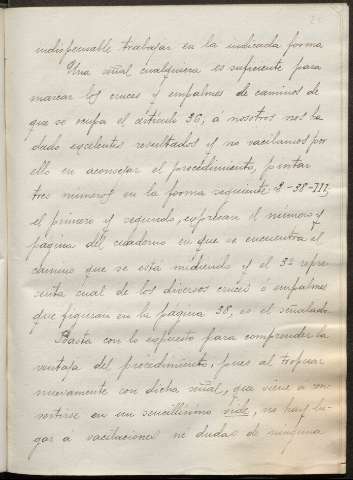 indispensable trabajar en la indicada forma
Una señal cualquiera es suficiente para
marcar los cruces y empalmes de caminos de
que se ocupa el artículo 36, á nosotros nos ha
dado excelentes resultados y no vacilamos por
ello en aconsejar el procedimiento, pintar
tres números en la forma siguiente 2-38-III,
el primero y segundo, expresan el número y
página del cuaderno en que se encuentra el
camino que se está midiendo y el 3º repre-
senta cual de los diversos cruces ó empalmes
que figuran en la página 38, es el señalado.
Basta con lo expuesto para comprender la
ventaja del procedimiento, pues al tropezar
nuevamente con dicha señal, que viene a con-
vertirse en un sencillísimo vide, no hay lu-
gar a vacilaciones ni dudas de ninguna